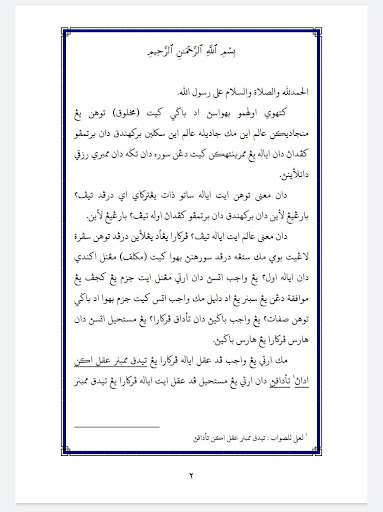 بِسْمِ ٱللَّهِ ٱلرَّحْمَـٰنِ ٱلرَّحِيمِ
الحمدلله والصلاة والسلام على رسول الله.
كتهوي اولهمو بهواسڽ اد باݢي كيت (مخلوق) توهن يڠ
منجاديكن عالم اين مك جاديله عالم اين سكلين بركهندق دان برتمڤو
كڤداڽ دان اياله يڠ ممرينتهكن كيت دڠن سوره دان تݢه دان ممبري رزقي
دانلأينڽ.
دان معنى توهن ايت اياله ساتو ذات يڠتركاي اي درڤد تيڤ٢
بارڠيڠ لأين دان بركهندق دان برتمڤو كڤداڽ اوله تيڤ٢ بارڠيڠ لأين.
دان معنى عالم ايت اياله تيڤ٢ ڤركارا يڠأد يڠلأين درڤد توهن سڤرة
لاڠيت بومي مك ستڠه درڤد سورهنڽ بهوا كيت (مكلف) مڠنل اكندي
دان اياله اول٢ يڠ واجب اتسڽ دان ارتي مڠنل ايت جزم يڠ كجڤ يڠ
موافقة دڠن يڠ سبنر يڠ اد دليل مك واجب اتس كيت جزم بهوا اد باݢي
توهن صفات٢ يڠ واجب باݢيڽ دان تأداق ڤركارا٢ يڠ مستحيل اتسڽ دان
هارس ڤركارا يڠ هارس باݢيڽ.
مك ارتي يڠ واجب ڤد عقل اياله ڤركارا يڠ تيدق ممبنر عقل اكن
اداڽ ١ تأداقڽ دان ارتي يڠ مستحيل ڤد عقل ايت اياله ڤركارا يڠ تيدق ممبنر
١ لعلى للصواب : تيدق ممبنر عقل اكن تأداقڽ
٢